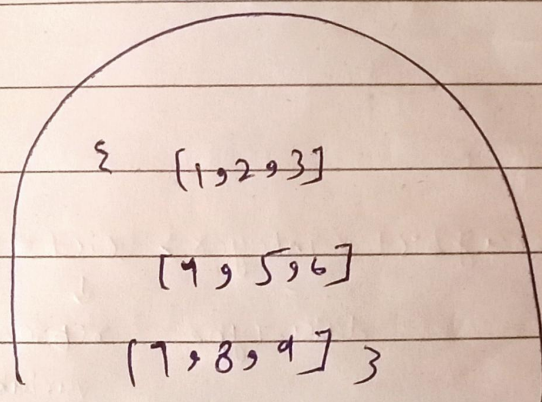 { [1,2,3]
[4,5,6]
[7,8,9] }